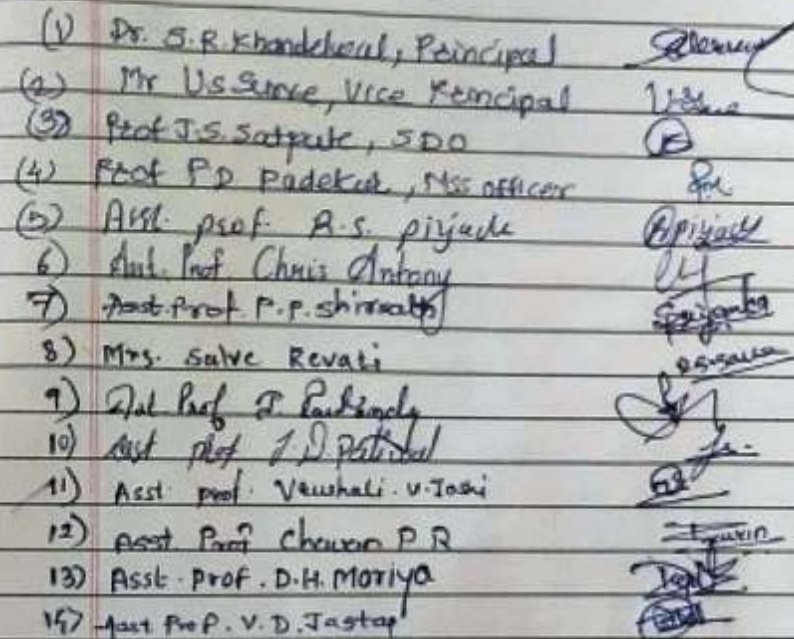 (1) Dr. S.R. Khandelwal, Principal
(2) Mr U S Surve, Vice Principal
(3) Prof J.S. Satpute, SDO
(4) Prof P D Padekar, NSS officer
(5) Asst. prof. R.S. pirjade Rpirjade
6) Asst. Prof. Chris Antony
7) Asst. Prof. P.P. shirsath Priyanka
8) Mrs. Salve Revati
9) Asst Prof J.
10) Asst prof J.D.
11) Asst. prof. Vaushali. V. Joshi
12) Asst. Prof Chavan P R
13) Asst. Prof. D.H. Moriya
14) Asst Prof. V.D. Jagtap